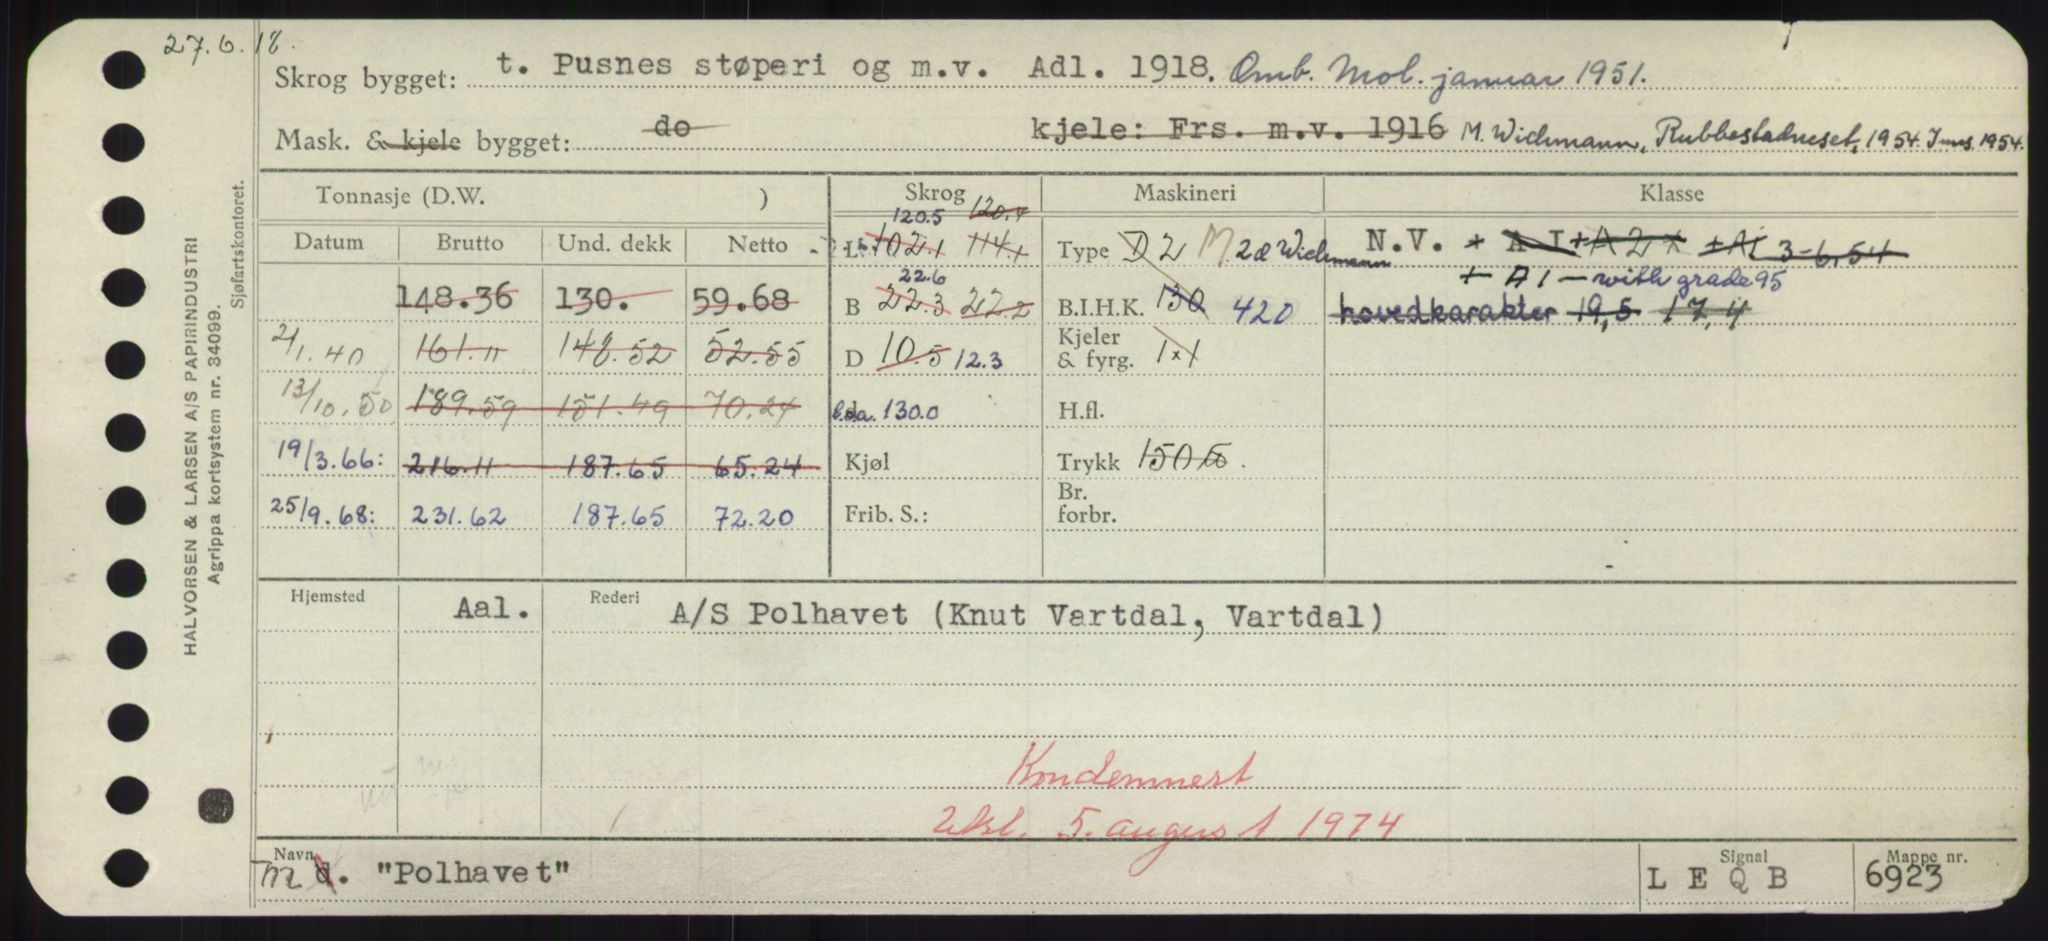 27.6.18.
Skrog bygget: t. Pusnes støperi og m.v. Adl. 1918. Omb. Mol. januar 1951.
Mask. & kjele bygget: do kjele: Frs. m.v. 1916 M. Wichmann, Rubbestadneset, 1954. Inns. 1954.
Tonnasje (D.W. ) Skrog Maskineri Klasse
120.5 120.4
Datum Brutto Und. dekk Netto L. 102.1 114.1 Type D 2 M 2a Wichmann N.V. + A I + A 2 + + A I 3-6.54
22.6 + A 1 — with grade 95
148.36 130. 59.68 B 22.3 22.2 B.I.H.K. 130 420 hovedkarakter 19,5 17,4
2/1.40 161.11 148.52 52.55 D 10.5 12.3 Kjeler & fyrg. 1x1
13/10.50 189.59 151.49 70.24 l.o.a. 130.0 H.fl.
19/3.66: 216.11 187.65 65.24 Kjøl Trykk 150
25/9.68: 231.62 187.65 72.20 Frib. S.: Br. forbr.
Hjemsted Aal. Rederi A/S Polhavet (Knut Vartdal, Vartdal)
Kondemnert
5. august 1974
Navn Signal Mappe nr.
m d. "Polhavet" L E Q B 6923
HALVORSEN & LARSEN A/S PAPIRINDUSTRI
Agrippa kortsystem nr. 34099.
Sjøfartskontoret.